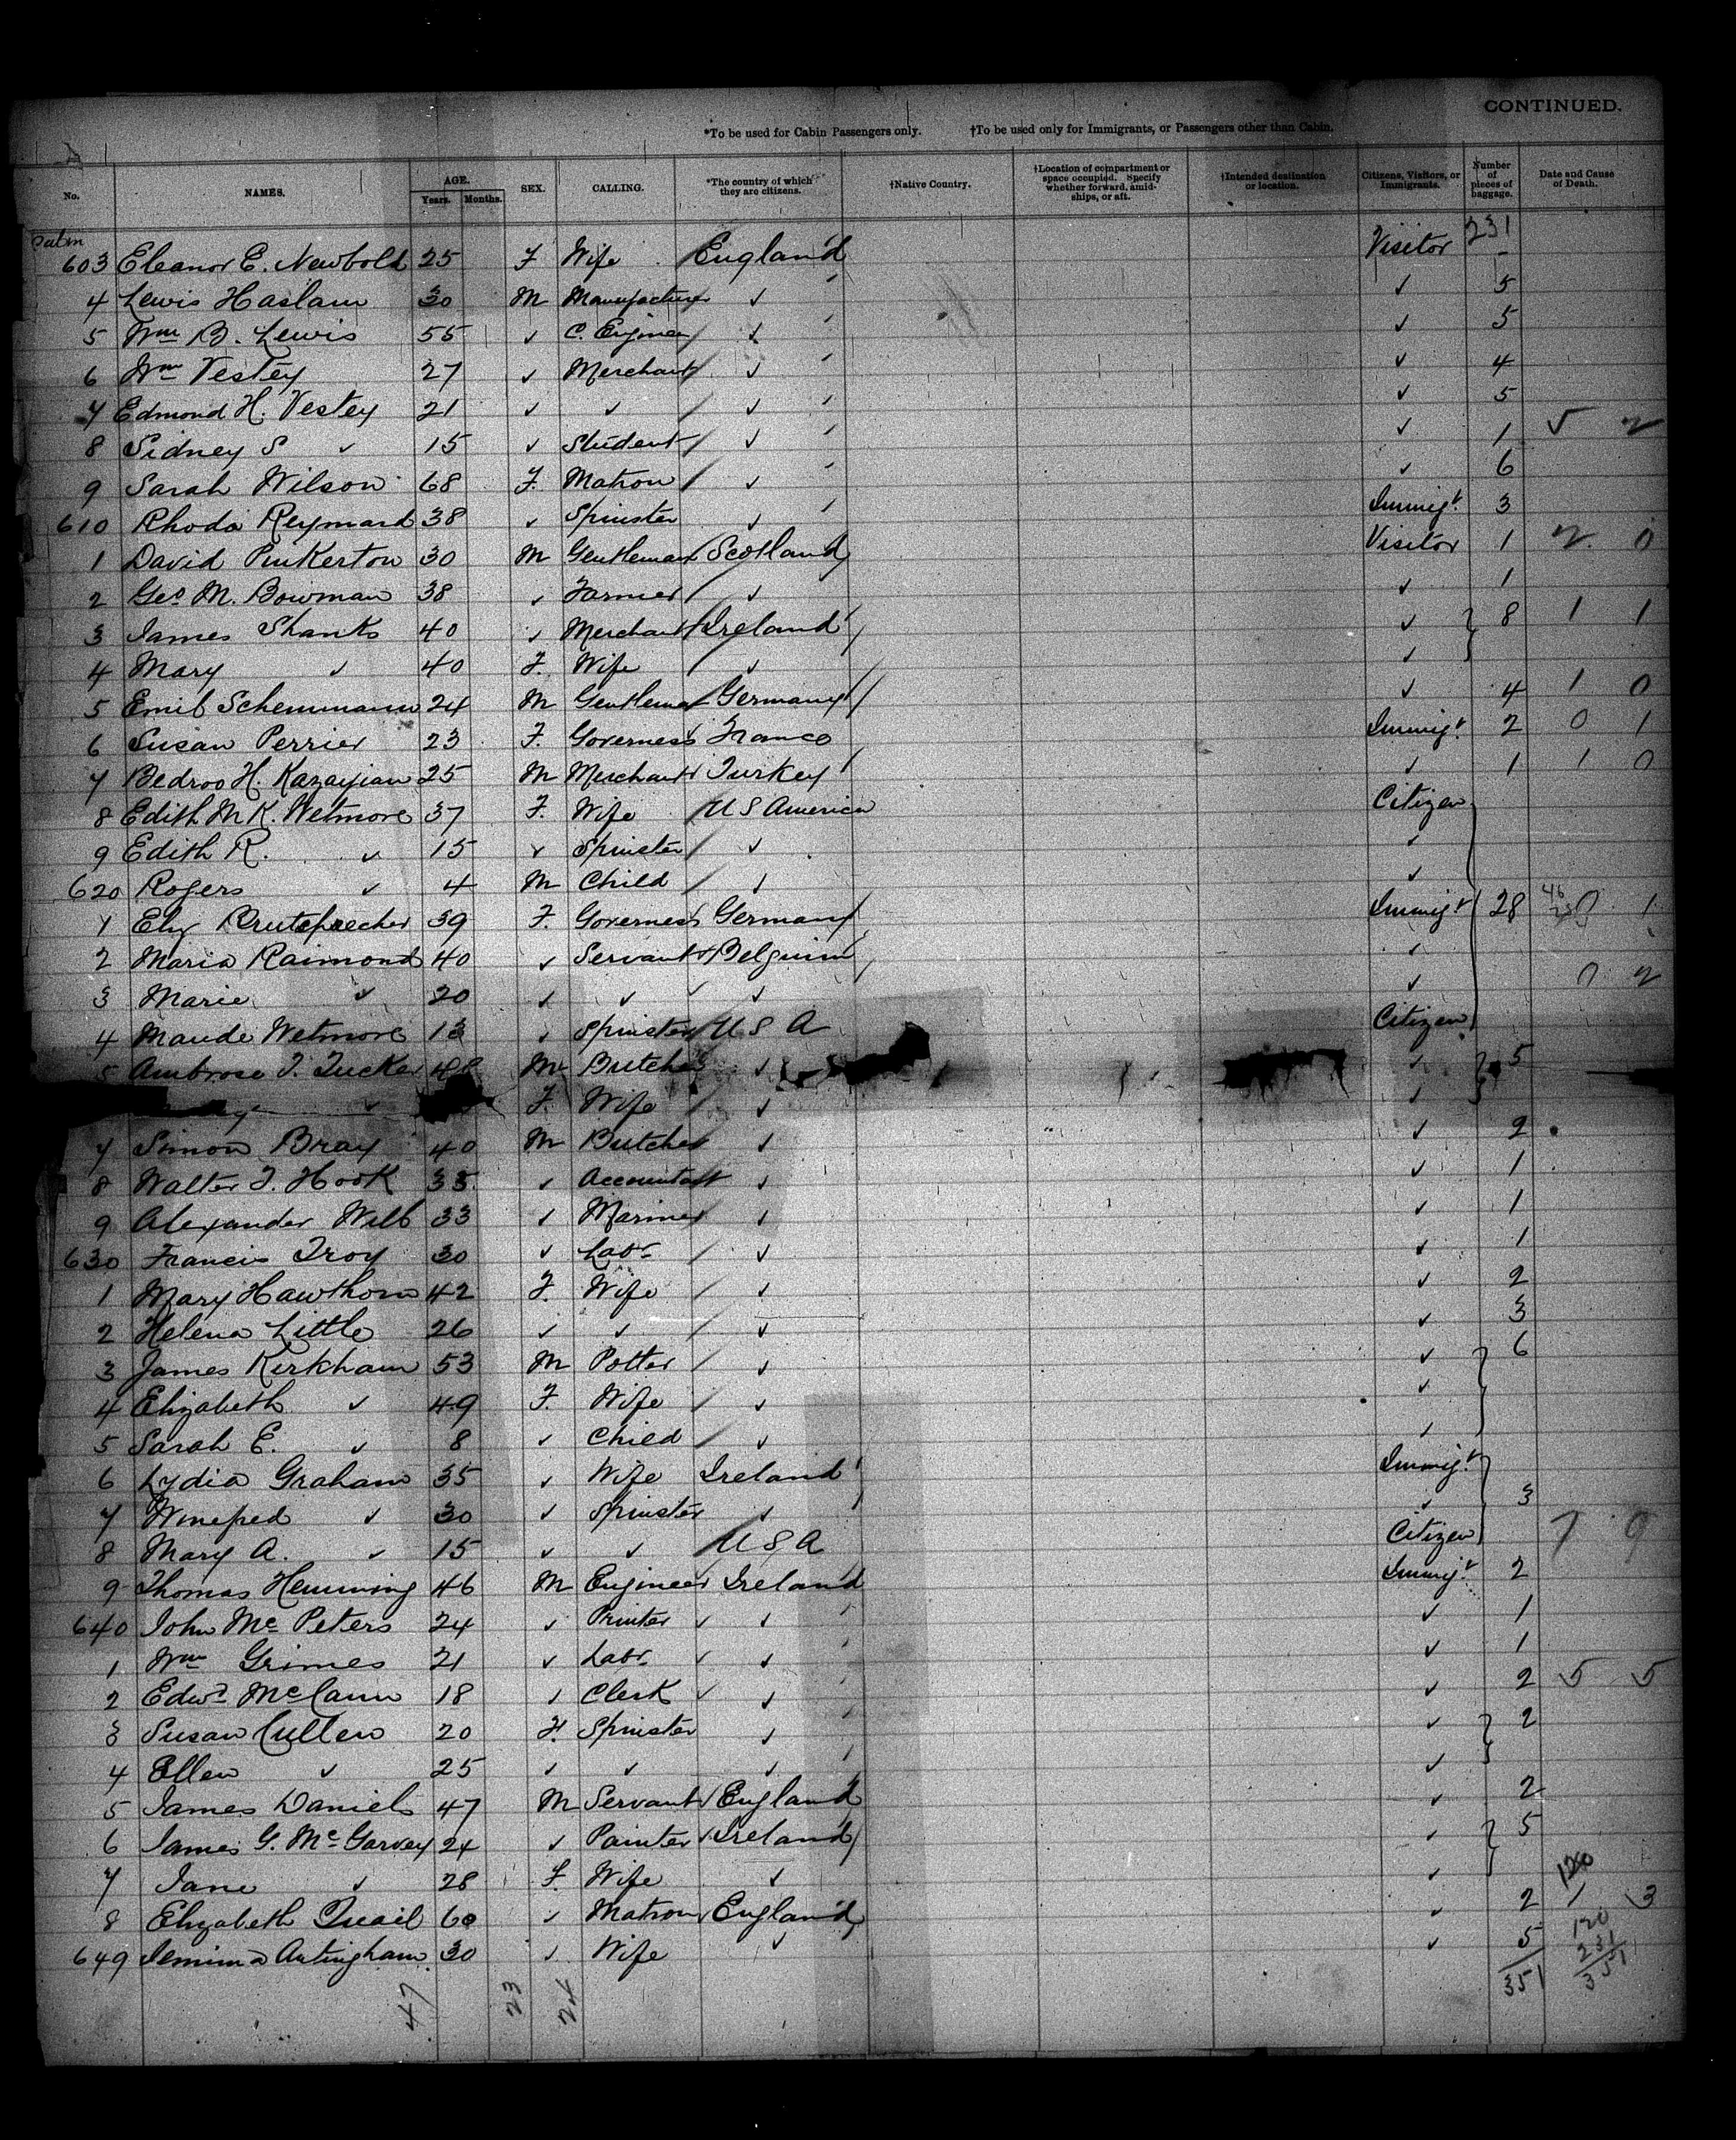 CONTINUED.
*To be used for Cabin Passengers only. †To be used only for Immigrants, or Passengers other than Cabin.
No. NAMES. AGE. Years. Months. SEX. CALLING. *The country of which they are citizens. †Native Country. †Location of compartment or space occupied. Specify whether forward, amidships, or aft. †Intended destination or location. Citizens, Visitors, or Immigrants. Number of pieces of baggage. Date and Cause of Death.
Cabin 231
603 Eleanor E. Newbold 25 F Wife England Visitor -
4 Lewis Haslam 30 M Manufacturer ✓ ✓ 5
5 Wm B. Lewis 55 ✓ C. Engineer ✓ ✓ 5
6 Wm Vestey 27 ✓ Merchant ✓ ✓ 4
7 Edmond H. Vestey 21 ✓ ✓ ✓ ✓ 5
8 Sidney S ✓ 15 ✓ Student ✓ ✓ 1 5 2
9 Sarah Wilson 68 F. Matron ✓ ✓ 6
610 Rhoda Reymard 38 ✓ Spinster ✓ Immigt. 3
1 David Pinkerton 30 M Gentleman Scotland Visitor 1 2 0
2 Geo M. Bowman 38 ✓ Farmer ✓ ✓ 1
3 James Shanks 40 ✓ Merchant Ireland ✓ 8 1 1
4 Mary ✓ 40 F. Wife ✓ ✓
5 Emil Schemmann 24 M Gentleman Germany ✓ 4 1 0
6 Susan Perrier 23 F. Governess France Immigt. 2 0 1
7 Bedros H. Kazayian 25 M Merchant Turkey ✓ 1 1 0
8 Edith M K. Wetmore 37 F. Wife U S America Citizen
9 Edith R. ✓ 15 ✓ Spinster ✓ ✓
620 Rogers ✓ 4 M Child ✓ ✓
1 Ely 39 F. Governess Germany Immigt 28 0 1
2 Maria Raimond 40 ✓ Servant Belguim ✓
3 Marie ✓ 20 ✓ ✓ ✓ ✓ 0 2
4 Maude Wetmore 13 ✓ Spinster U S A Citizen
5 Ambrose F. Tucker 48 M Butcher ✓ ✓ 5
✓ F. Wife ✓ ✓
7 Simon Bray 40 M Butcher ✓ ✓ 2
8 Walter F. Hook 35 ✓ Accountant ✓ ✓ 1
9 Alexander 33 ✓ Mariner ✓ ✓ 1
630 Francis Troy 30 ✓ Labr ✓ ✓ 1
1 Mary Hawthorn 42 F. Wife ✓ ✓ 2
2 Helena Little 26 ✓ ✓ ✓ ✓ 3
3 James Kirkham 53 M Potter ✓ ✓ 6
4 Elizabeth ✓ 49 F. Wife ✓ ✓
5 Sarah E. ✓ 8 ✓ Child ✓ ✓
6 Lydia Graham 35 ✓ Wife Ireland Immigt.
7 Winefred ✓ 30 ✓ Spinster ✓ ✓ 3
8 Mary A. ✓ 15 ✓ ✓ U S A Citizen 7 9
9 Thomas Hemming 46 M Engineer Ireland Immigt. 2
640 John Mc Peters 24 ✓ Printer ✓ ✓ 1
1 Wm Grimes 21 ✓ Labr. ✓ ✓ 1
2 Edwd McCann 18 ✓ Clerk ✓ ✓ 2 5 5
3 Susan Cullen 20 F. Spinster ✓ ✓ 2
4 Ellen ✓ 25 ✓ ✓ ✓ ✓
5 James Daniels 47 M Servant England ✓ 2
6 James G. McGarvey 24 ✓ Painter Ireland ✓ 5
7 Jane ✓ 28 F. Wife ✓ ✓ 120
8 Elizabeth Quail 60 ✓ Matron England ✓ 2 1 3
649 Jemima Antingham 30 ✓ Wife ✓ ✓ 5
351
120
231
351
47 23 24